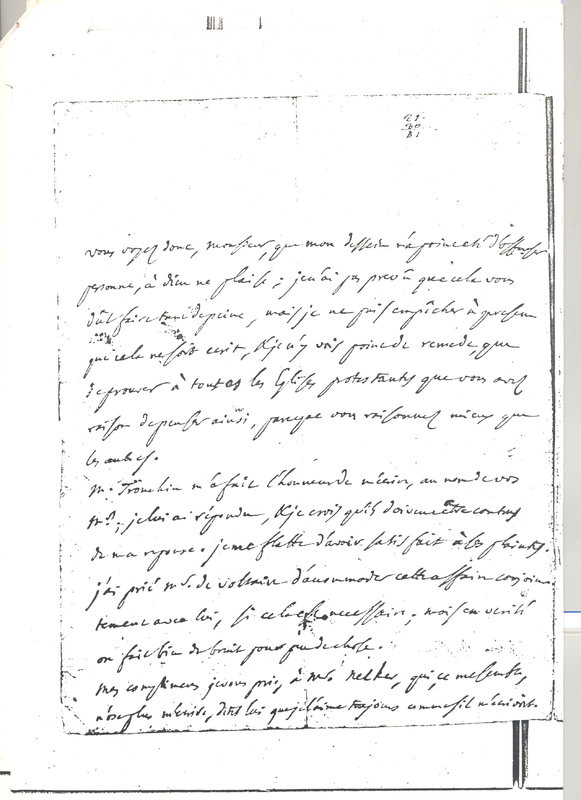 vous voyez donc, monsieur, que mon dessein n'a point été d'offenser
personne, à dieu ne plaise ; je n'ai pas prevû que cela vous
dût faire tant de peine, mais je ne puis empêcher à present
que cela ne soit ecrit, & je n'y vois point de remede, que
de prouver à toutes les Eglises protestantes que vous avez
raison de penser ainsi, parceque vous raisonnez mieux que
les autres.
Mr. Tronchin m'a fait l'honneur de m'écrire, au nom de vos
Mrs. ; je lui ai répondu, & je crois qu'ils doivent être contens
de ma reponse. je me flatte d'avoir satisfait à ses plaintes.
j'ai prié Mr. de voltaire d'accommoder cette affaire conjoin-
tement avec lui, si cela est necessaire ; mais en verité
on fait bien du bruit pour peu de chose.
mes complimens je vous prie, à Mr. Necker, qui, ce me semble,
n'ose plus m'ecrire, dites lui que je l'aime toujours comme s'il m'ecrivoit.